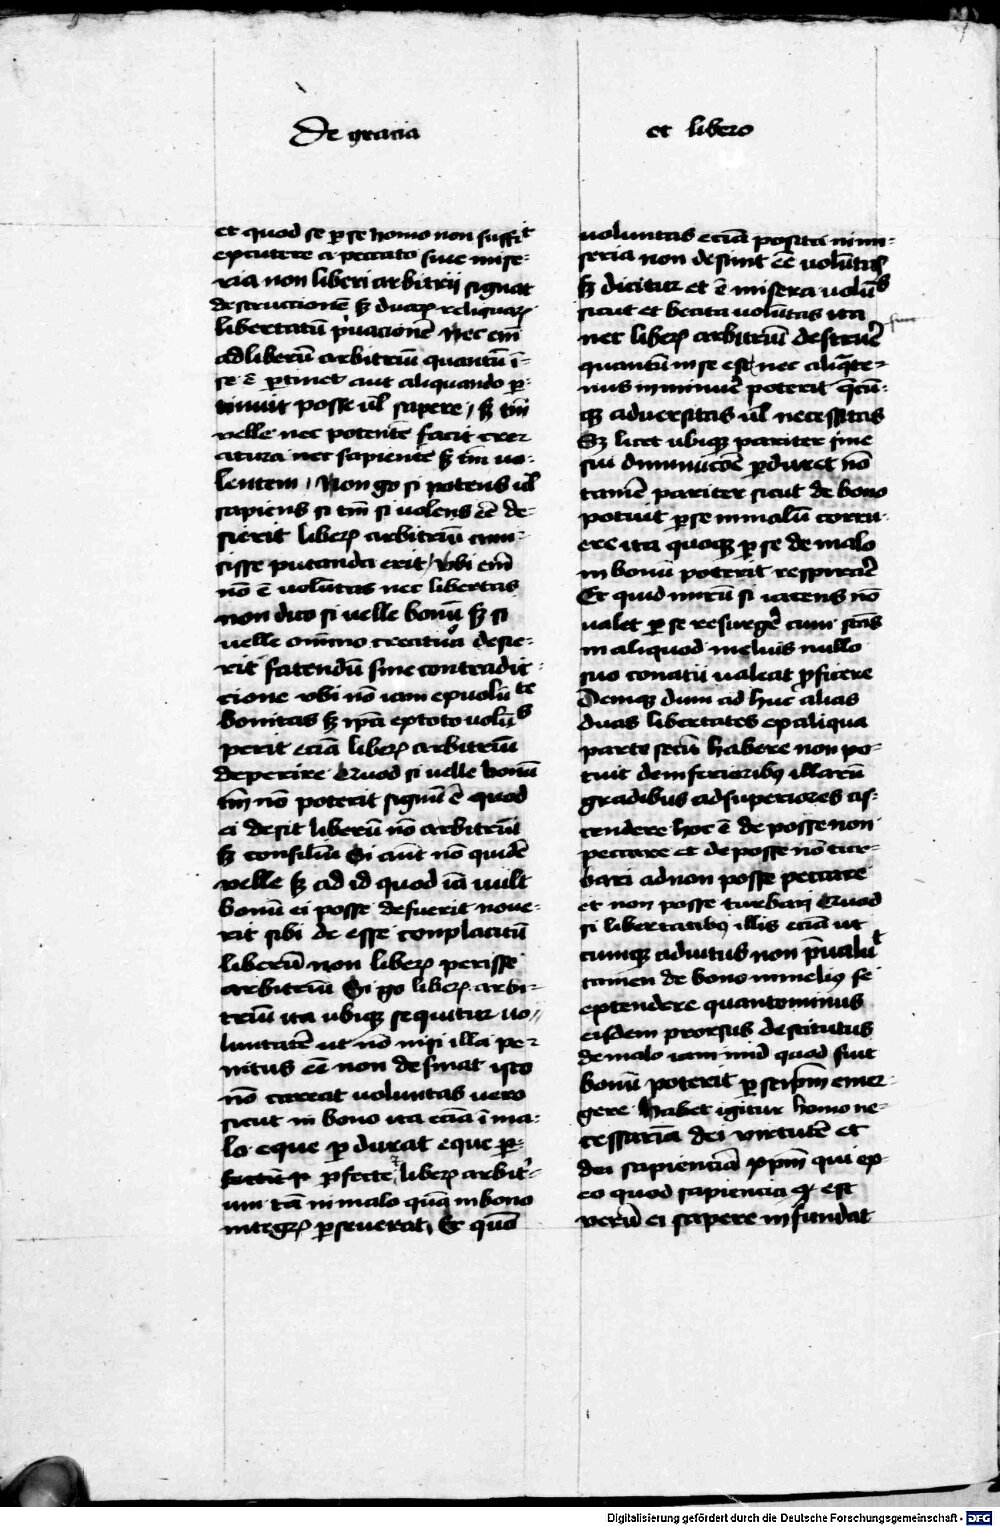 De gracia
et libero
et quod se ꝑ se homo non suffit
excutere a peccato siue mise-
ria non liberi arbitrii signat
destruccionē sꝫ duaꝝ reliquaꝝ
libertatū pͥuacionē Nec em̄
ad liberū arbitriū quantū ī-
se ē ꝑtinet aut aliquando ꝑ-
tinuit posse ul̄ sapere / sꝫ tm̄
velle nec potentē facit crea-
atura nec sapientē sꝫ tm̄ uo-
lentem / Non go si potens ul̄
sapiens si tm̄ si uolens eē de-
sierit liberꝝ arbitriū ami-
sisse putanda erit / Vbi em̄
nō ē uolūtas nec libertas
non dico si uelle bonū sꝫ si
uelle omīno creatura desie-
rit fatendū sine contradic-
cione vbi nō iam ex uolūte
bonitas sꝫ ip̄a ex toto uolūs
perit eciā liberꝝ arbitriū
deperire Quod si uelle bonū
tm̄ nō poterit signū ē quod
ei desit liberū nō arbitriū
sꝫ consiliū Si aūt nō quidē
velle sꝫ ad id quod iā uult
bonū ei posse defuerit noue-
rit sibi de esse conplacitū
liberū non liberꝝ perisse
arbitriū Si go liberꝝ arbi-
triū ita ubiqꝫ sequitur uo-
luntatē ut nō nisi illa pe-
nitus eē non desinat isto
nō careat uoluntas uero
sicut in bono ita eciā ī ma-
lo eque ꝑdurat eque ꝑ-
ꝑfecte liberꝝ arbitͥ-
um tā in malo quā in bono
integꝝ ꝑseuerat / Et quō
uoluntas eciā posita in mi-
seria non desinit eē uolūtas
sꝫ dicitur et ē misera uolūs
sicut et beata uolūtas ita
nec liberꝝ arbitriū destruē
quantū in se est / nec aliqͣte-
nus inminuē poterit qͣcū-
qꝫ aduersitas ul̄ necessitas
Sꝫ licet ubiqꝫ pariter sine
sui diminucōe ꝑduret nō
tamē pariter sicut de bono
potuit ꝑ se in malū corru-
ere ita quoqꝫ ꝑ se de malo
in bonū poterit respirare
Et quid mirū si iacens nō
ualet ꝑ se resurgē cum stās
in aliquod melius nullo
suo conatu ualeat ꝓficere
Deniqꝫ dum ad huc alias
duas libertates ex aliqua
parte secū habere non po-
tuit de inferioribꝰ illarū
gradibus ad superiores as-
cendere hoc ē de posse non
peccare et de posse nō tur-
bari ad non posse peccare
et non posse turbari Quod
si libertatibꝰ illis eciā ut
cumqꝫ adiutus non p̄ualuit
tamen de bono in meliꝰ se
extendere quantominus
eisdem prorsus destitutus
de malo iam in id quod fuit
bonū poterit ꝑ seip̄m emer-
gere Habet igitur homo ne-
cessariā dei virtutē et
dei sapienciā xpm̄ qui ex-
eo quod sapiencia est
verū ei sapere in fundat